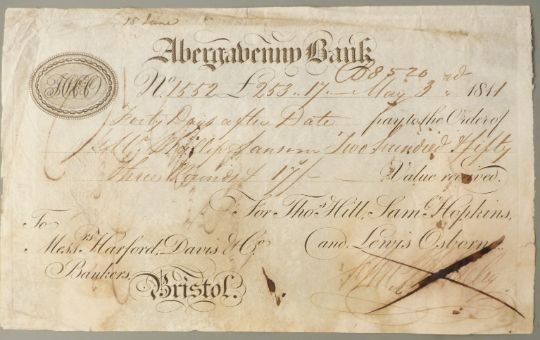 15 June
Abergavenny Bank
D8520
No 1552 £253 " 17 " — May 3rd 1811
Forty Days after Date pay to the Order of
Phillip Sansom Two hundred Fifty
Three Pounds & 17/- Value received.
For Thos. Hill, Saml. Hopkins,
To
and Lewis Osborn.
Messrs. Harford, Davis & Co.
Bankers,
Bristol.